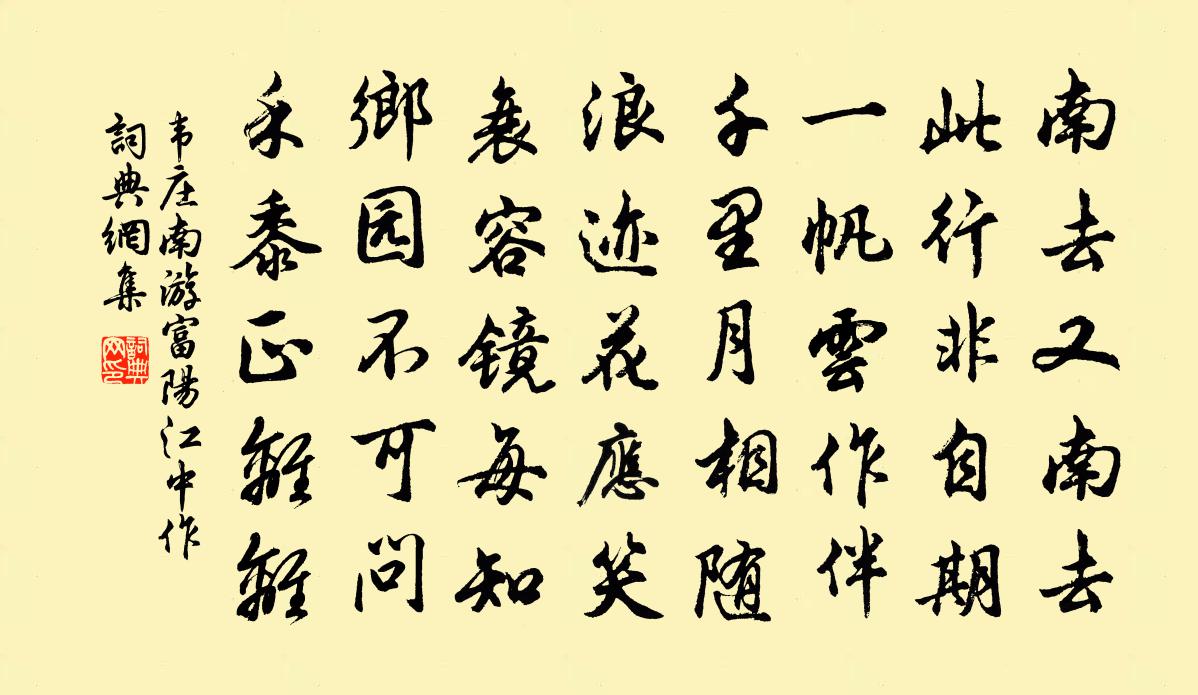 南去又南去
此行非自期
一帆雲作伴
千里月相随
浪迹花應笑
衰容镜每知
鄉园不可问
禾黍正離離
韦庄南游富陽江中作
詞典網集
詞典网印